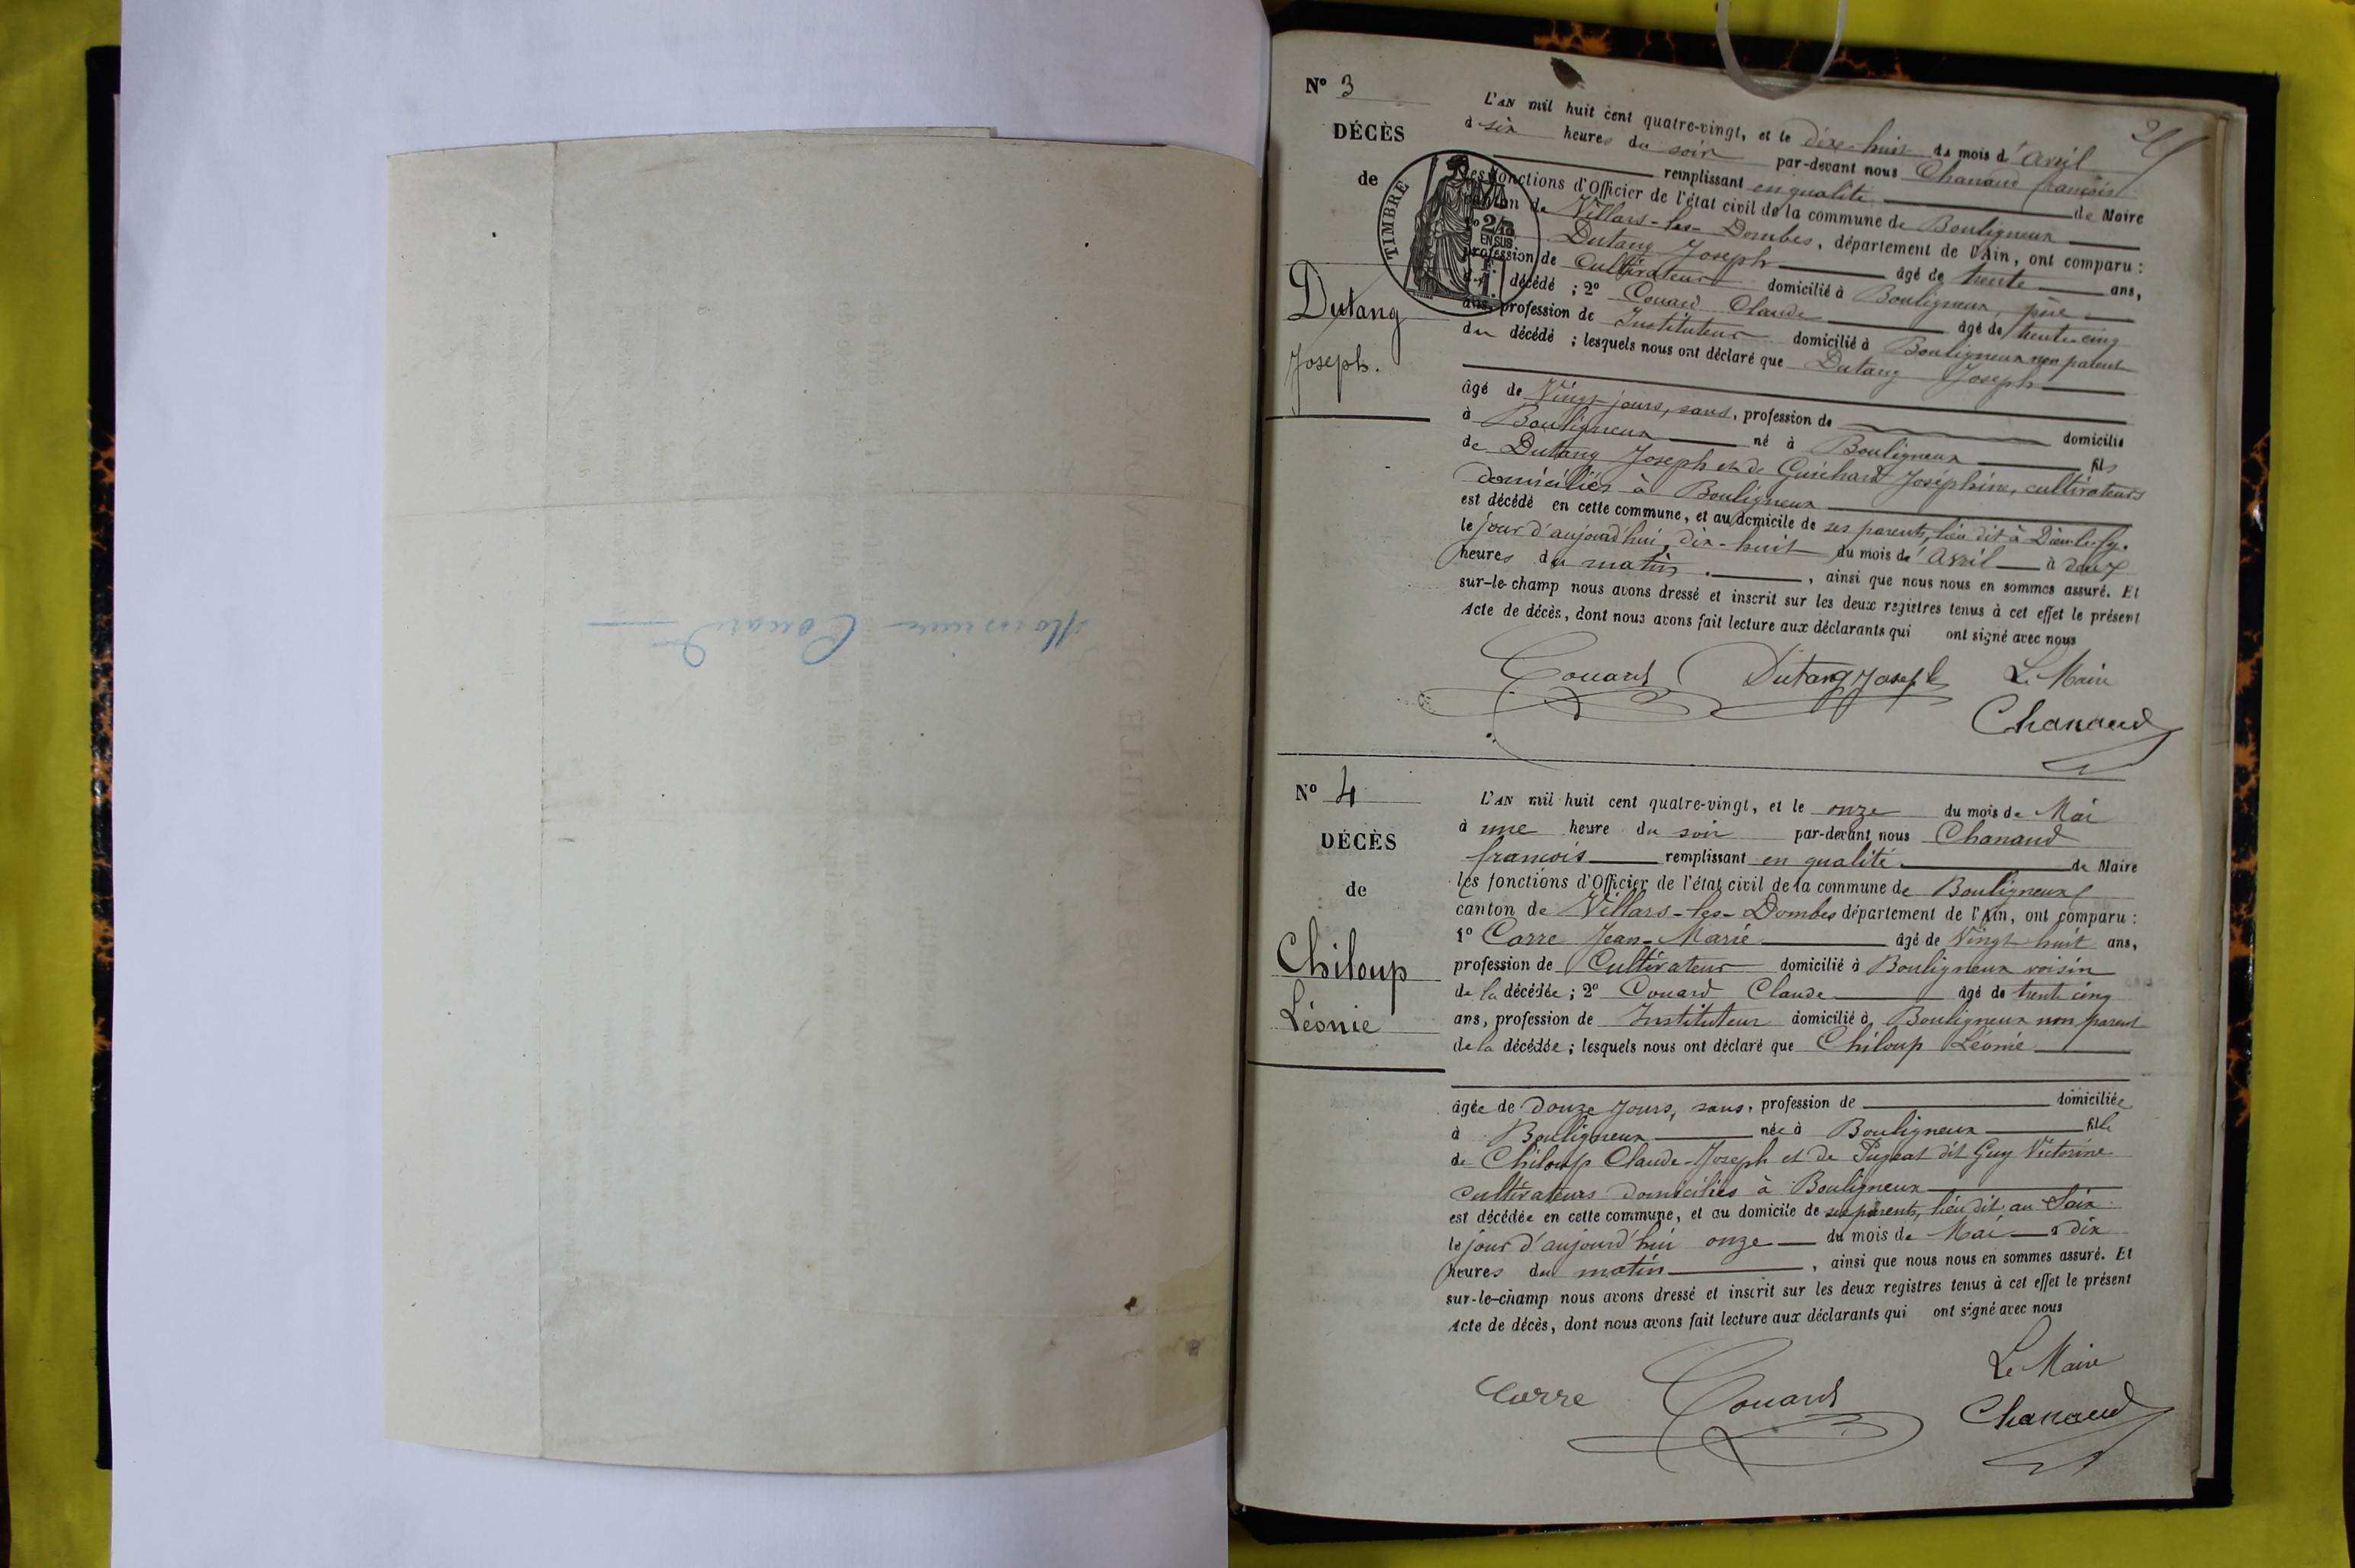 Monsieur Couard
N° 3
DÉCÈS
de
Dutang
Joseph.
TIMBRE
2/10
EN SUS
L'AN mil huit cent quatre-vingt, et le dix-huit du mois d'avril
à six heures du soir par-devant nous Chanaud françois
remplissant en qualité de Maire
les fonctions d'Officier de l'état civil de la commune de Bouligneux
canton de Villars-les-Dombes, département de l'Ain, ont comparu :
Dutang Joseph âgé de trente ans,
profession de Cultivateur domicilié à Bouligneux, père
du décédé ; 2° Couard Claude âgé de trente cinq
ans, profession de Instituteur domicilié à Bouligneux non parent
du décédé ; lesquels nous ont déclaré que Dutang Joseph
âgé de Vingt jours, sans, profession de domicilié
à Bouligneux né à Bouligneux fils
de Dutang Joseph et de Guichard Joséphine, cultivateurs
domiciliés à Bouligneux
est décédé en cette commune, et au domicile de ses parents, lieu dit à
le jour d'aujourd'hui, dix-huit du mois d'avril à deux
heures du matin, ainsi que nous nous en sommes assuré. Et
sur-le-champ nous avons dressé et inscrit sur les deux registres tenus à cet effet le présent
Acte de décès, dont nous avons fait lecture aux déclarants qui ont signé avec nous
Couard Dutang Joseph Le Maire
Chanaud
N° 4
DÉCÈS
de
Chiloup
Léonie
L'AN mil huit cent quatre-vingt, et le onze du mois de Mai
à une heure du soir par-devant nous Chanaud
françois remplissant en qualité de Maire
les fonctions d'Officier de l'état civil de la commune de Bouligneux
canton de Villars-les-Dombes département de l'Ain, ont comparu :
1° Carre Jean-Marie âgé de Vingt-huit ans,
profession de Cultivateur domicilié à Bouligneux voisin
de la décédée ; 2° Couard Claude âgé de trente cinq
ans, profession de Instituteur domicilié à Bouligneux non parent
de la décédée ; lesquels nous ont déclaré que Chiloup Léonie
âgée de douze jours, sans, profession de domiciliée
à Bouligneux née à Bouligneux fille
de Chiloup Claude-Joseph et de Pugeat dit Guy Victorine
cultivateurs domiciliés à Bouligneux
est décédée en cette commune, et au domicile de ses parents, lieu dit au Saix
le jour d'aujourd'hui onze du mois de Mai à dix
heures du matin, ainsi que nous nous en sommes assuré. Et
sur-le-champ nous avons dressé et inscrit sur les deux registres tenus à cet effet le présent
Acte de décès, dont nous avons fait lecture aux déclarants qui ont signé avec nous
Carre Couard Le Maire
Chanaud